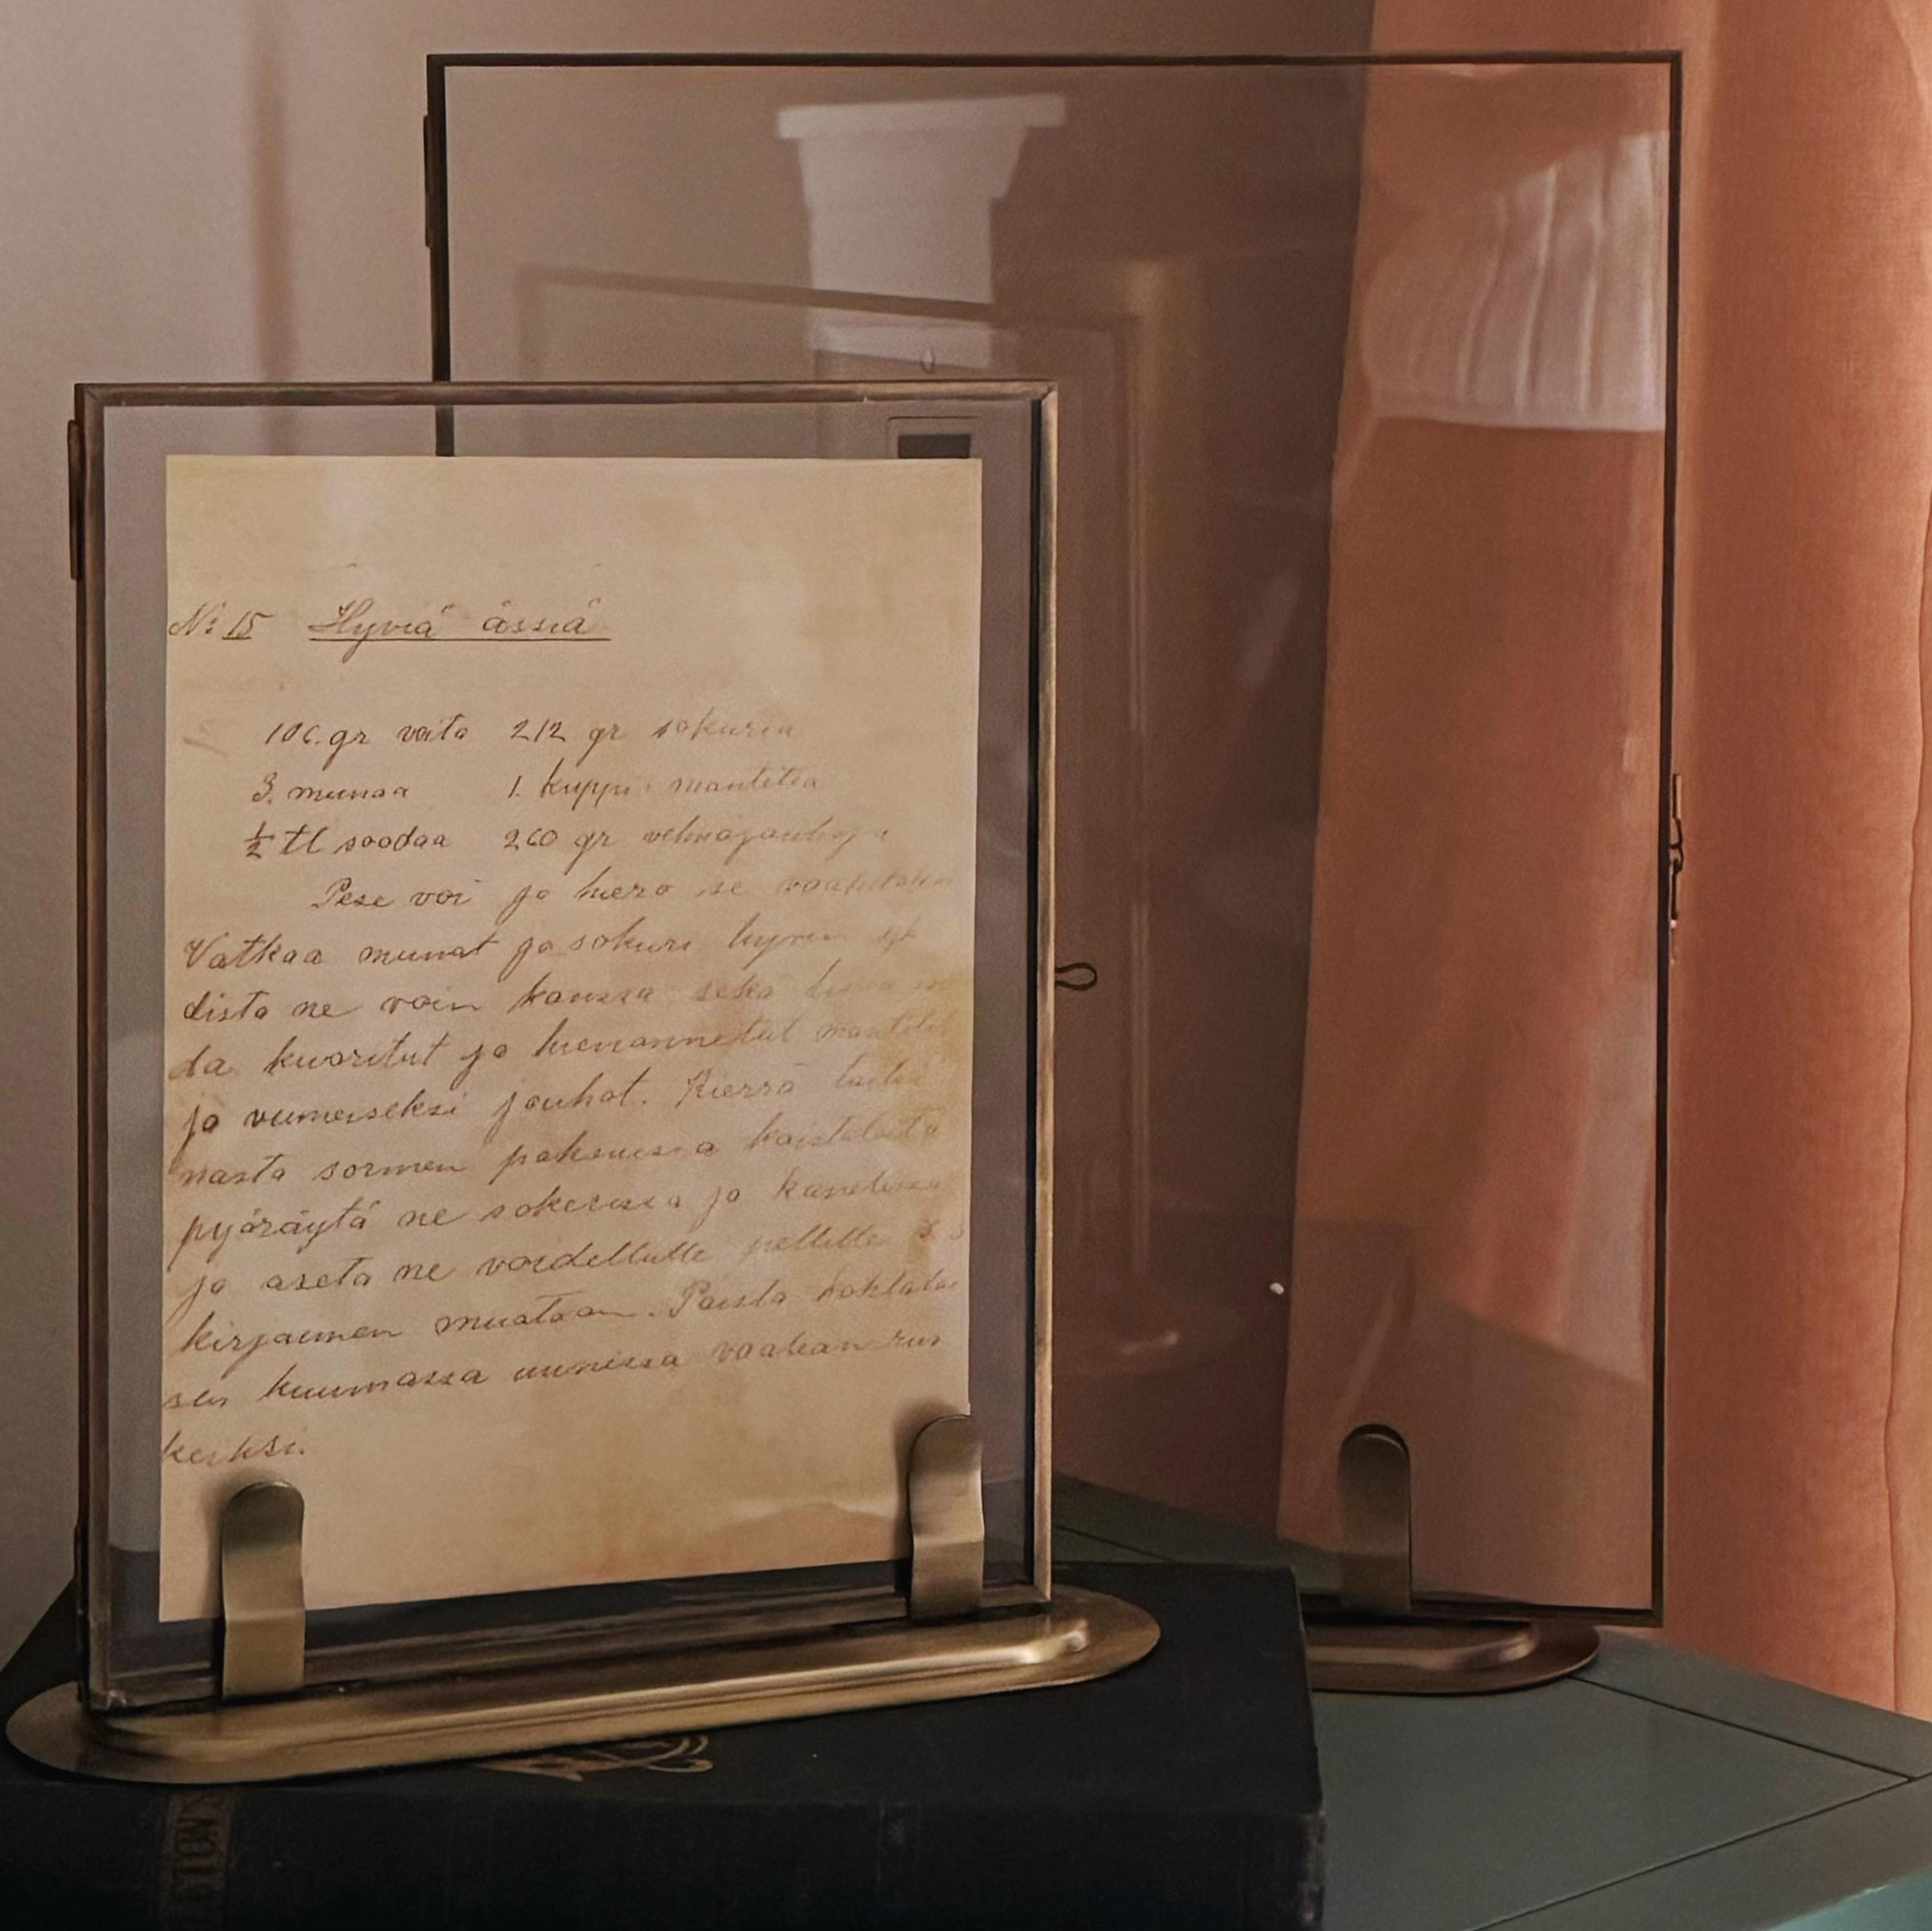 No 15 Hyviä ässiä
106. gr voita 212 gr sokuria
3. munaa 1. kuppi mantelia
½ tl soodaa 260 gr vehnäjauhoja
Pese voi ja hiero se vaahdoksi
Vatkaa munat ja sokuri hyvin yh
distä ne voin kanssa sekä
da kuoritut ja hienonnetut mantelit
ja viimeiseksi jauhot. Kierrä taiki
nasta sormen paksuisia kaistaleita
pyöräytä ne sokerissa ja kanelissa
ja aseta ne voidellulle pellille S
kirjaimen muotoon. Paista kohtalai
sen kuumassa uunissa vaalean rus
keiksi.